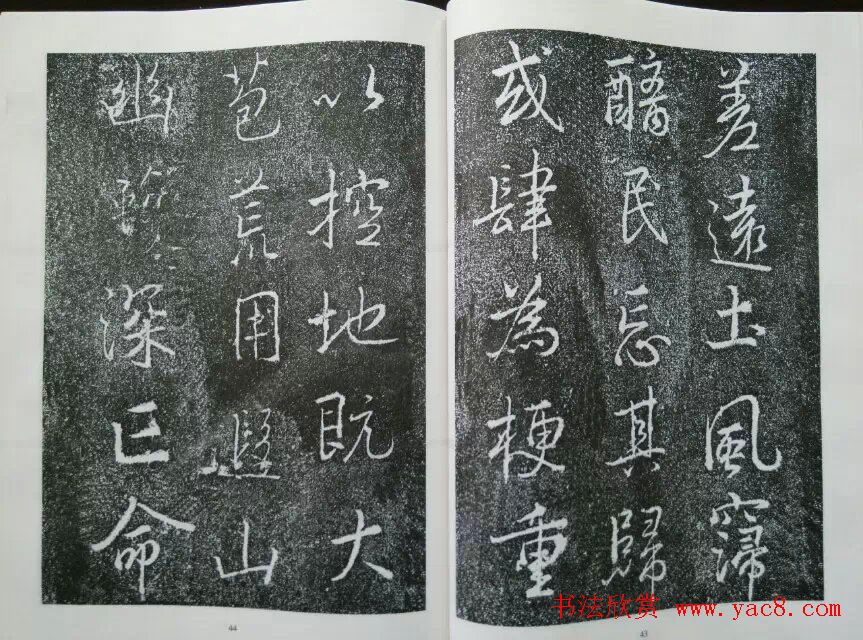 差遠土風寖
醨民忘其歸
或肆為梗重
以控地既大
苞荒用遐山
幽深亡命
44
43
书法欣赏 www.yac8.com